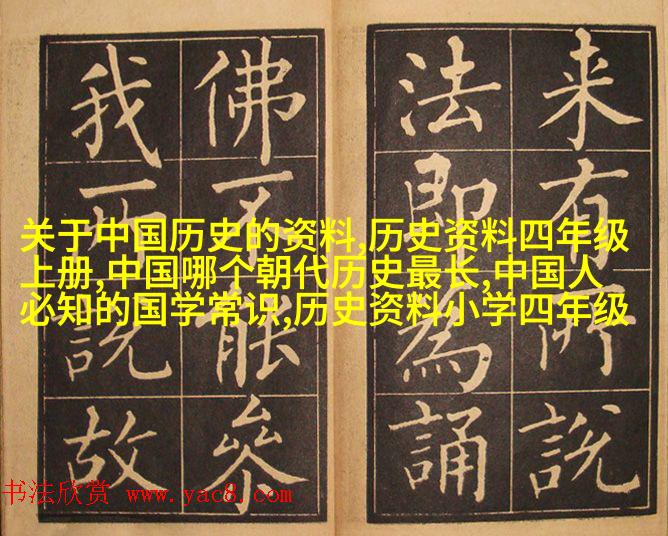 关于中国历史的资料,历史资料四年级
上册,中国哪个朝代历史最长,中国人
必知的国学常识,历史资料小学四年级
来有所說
法即為誦
佛不能叅
我所說故
书法欣赏 www.yac8.com